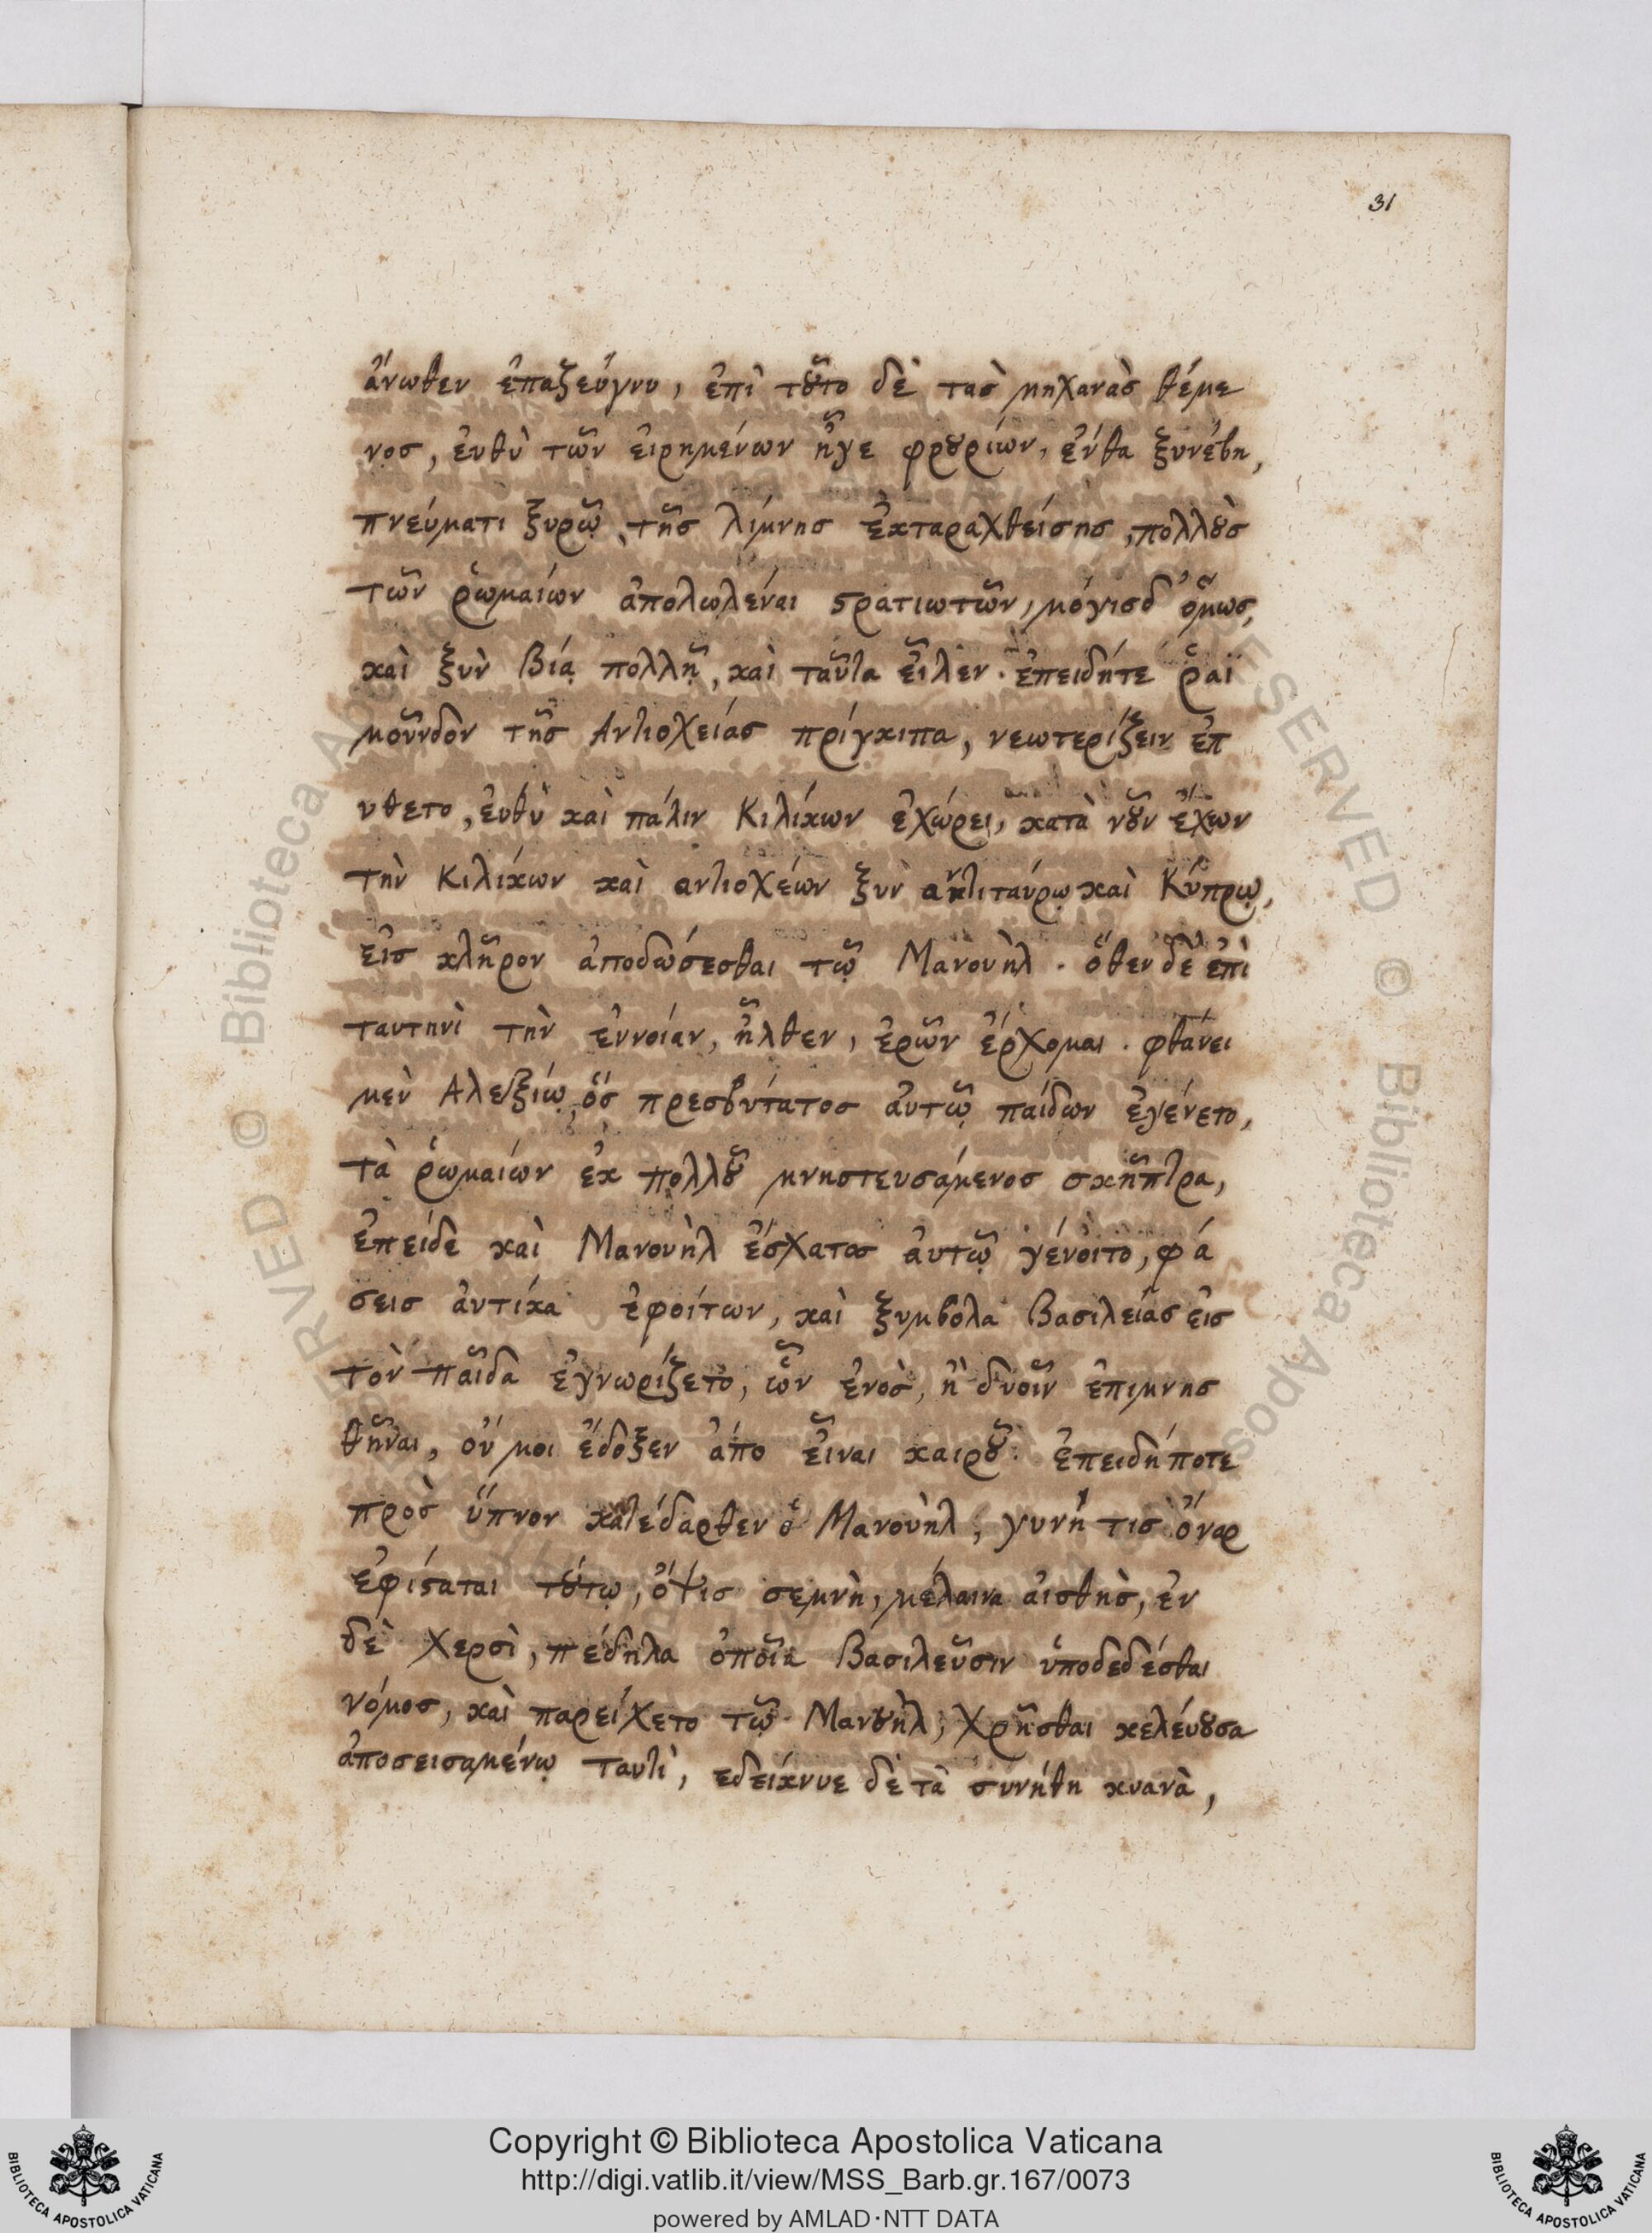 31
ἄνωθεν ἐπαζεύγνυ, ἐπὶ τοῦτο δὲ τασ μηχανὰσ θέμε
νοσ, ἐυθὺ τῶν ἐιρημένων ἦγε φρουρίων, ἔνθα ξυνέβη,
πνεύματι ξυρῷ, τῆσ λίμνησ ἐκταραχθείσησ, πολλοὺσ
τῶν ῥωμαίων ἀπολωλέναι στρατιωτῶν, μόγισδ ὅμωσ,
καὶ ξὺν βίᾳ πολλῇ, καὶ ταῦτα εἷλεν. ἐπειδήτε ῥαϊ
μοῦνδον τῆσ Αντιοχείασ πρίγκιπα, νεωτερίζειν ἐπ
υθετο, ἐυθὺ καὶ πάλιν Κιλίκων ἐχώρει, κατὰ νοῦν ἔχων
τὴν Κιλίκων καὶ αντιοχέων ξὺν ἀντιταύρῳ καὶ Κύπρῳ,
εἰσ κλῆρον ἀποδώσεσθαι τῷ Μανουὴλ. ὅθεν δὲ ἐπὶ
ταυτηνὶ τὴν ἐννοίαν, ἦλθεν, ἐρῶν ἔρχομαι. φθάνει
μὲν Αλεξίῳ, ὅσ πρεσβύτατοσ ἀυτῷ παίδων ἐγένετο,
τὰ ῥωμαίων ἐκ πολλοῦ μνηστευσάμενοσ σκῆπτρα,
ἐπείδε καὶ Μανουὴλ ἔσχατοσ ἀυτῷ γένοιτο, φά
σεισ ἀυτίκα ἐφοίτων, καὶ ξυμβολα βασιλείασ εἰσ
τὸν παῖδα ἐγνωρίζετο, ὧν ἑνὸσ, ἢ δυοῖν ἐπιμνησ
θῆναι, οὔ μοι ἔδοξεν ἄπο εἶναι καιροῦ. ἐπειδήποτε
πρὸσ ὕπνον κατέδαρθεν ὁ Μανουὴλ, γυνή τισ ὄναρ
ἐφίσταται τούτῳ, ὄψισ σεμνὴ, μέλαινα ἀισθὴσ, ἐν
δὲ χερσὶ, πέδηλα ὁποῖα βασιλεῦσιν ὑποδεδέσθαι
νόμοσ, καὶ παρείχετο τῷ Μανουὴλ, χρῆσθαι κελέυουσα
ἀποσεισαμένῳ ταυτὶ, εδείκνυε δὲ τὰ συνήθη κυανὰ,
Copyright © Biblioteca Apostolica Vaticana
http://digi.vatlib.it/view/MSS_Barb.gr.167/0073
powered by AMLAD·NTT DATA